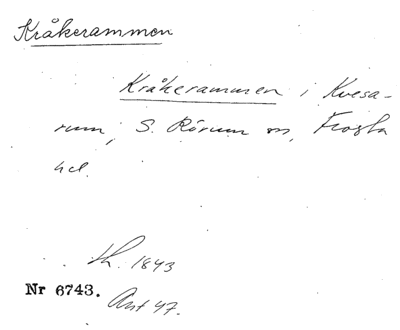 Kråkerammen
Kråkerammen i Kvesa-
rum, S. Rörum sn, Frosta
hd.
Sk. 1843
Nr 6743. Ant 47.